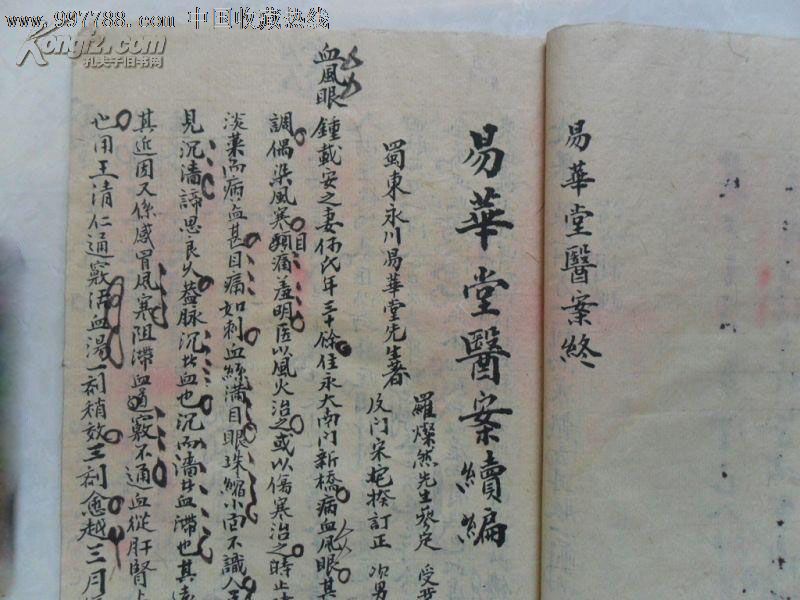 www.997788.com 中国收藏热线
Kongfz.com
孔夫子旧书网
易華堂醫案終
易華堂醫案續編
羅燦然先生參定 受業
蜀東永川易華堂先生著
及門宋 揆訂正 次男
血風眼
鍾載安之妻 氏年三十餘住永大南门新橋病血風眼其
調偶染風寒頭痛羞明医以風火治之或以傷寒治之時止
目
淡藥而病益甚目痛如刺血絲滿目眼珠縮小而不識人
見沉濇諦思良久蓋脉沉 血也沉而濇 血滯也其
其近因又係感冒風寒阻滯血道竅不通血從肝腎
也用王清仁通竅活血湯一剂稍效三剂愈越三月